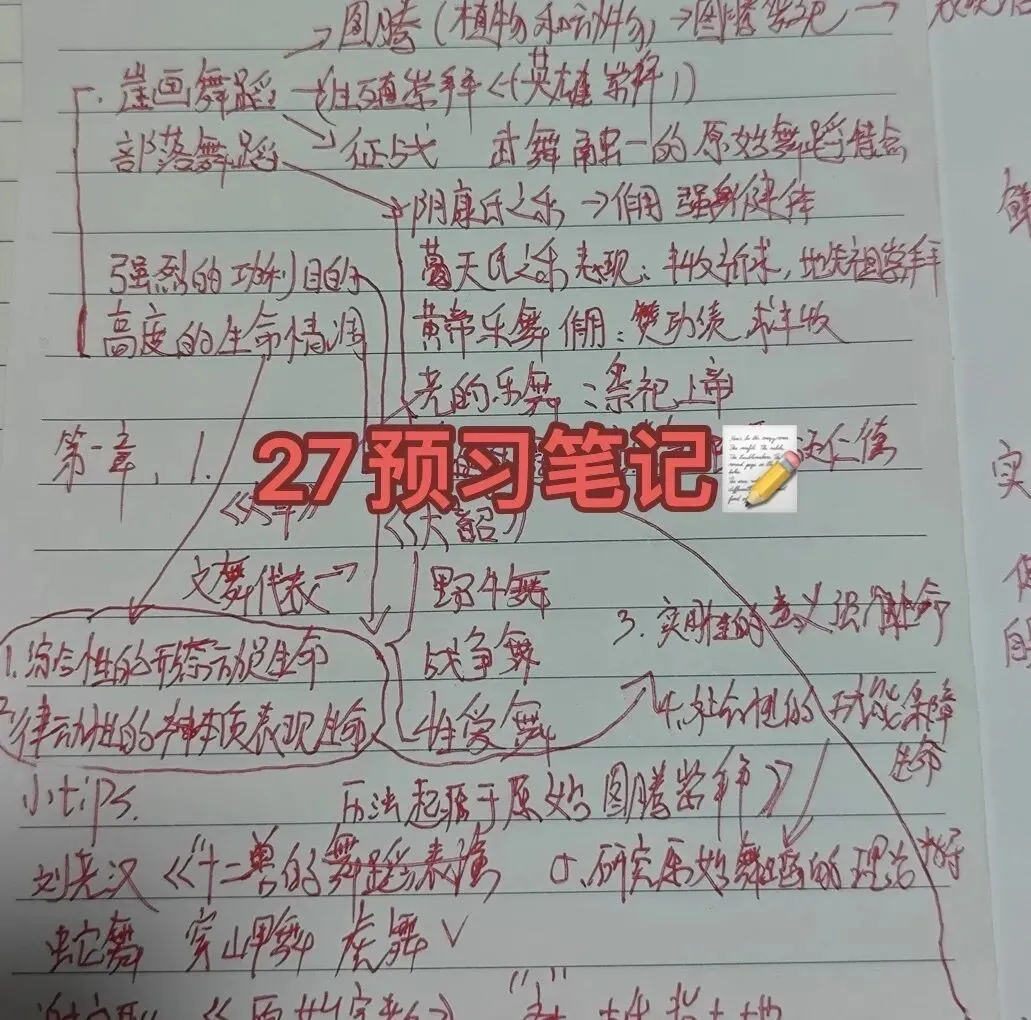 →图腾(植物和动物)→图腾祭祀→
崖画舞蹈→生殖崇拜<(英雄崇拜)
部落舞蹈→征战 武舞融一的原始舞蹈
阴康氏之乐→作用 强身健体
强烈的功利目的 葛天氏之乐 表现:丰收祈求,地 祖崇拜
高度的生命情调 黄帝乐舞 作用:赞功绩 求丰收
尧的乐舞:祭祀上帝
第一章,1.
27预习笔记
仁德
《大章》 《大韶》
文舞代表→ 野牛舞
3.实用性的意义强 生命
1.综合性的形 动 生命 战争舞
2.律动性的 表现生命 性爱舞 4.社会性的功能保障
生命
小tips. 历法起源于原始图腾崇拜》
刘尧汉《十二兽的舞蹈表演 研究原始舞蹈的理论指导
蛇舞 穿山甲舞 虎舞√